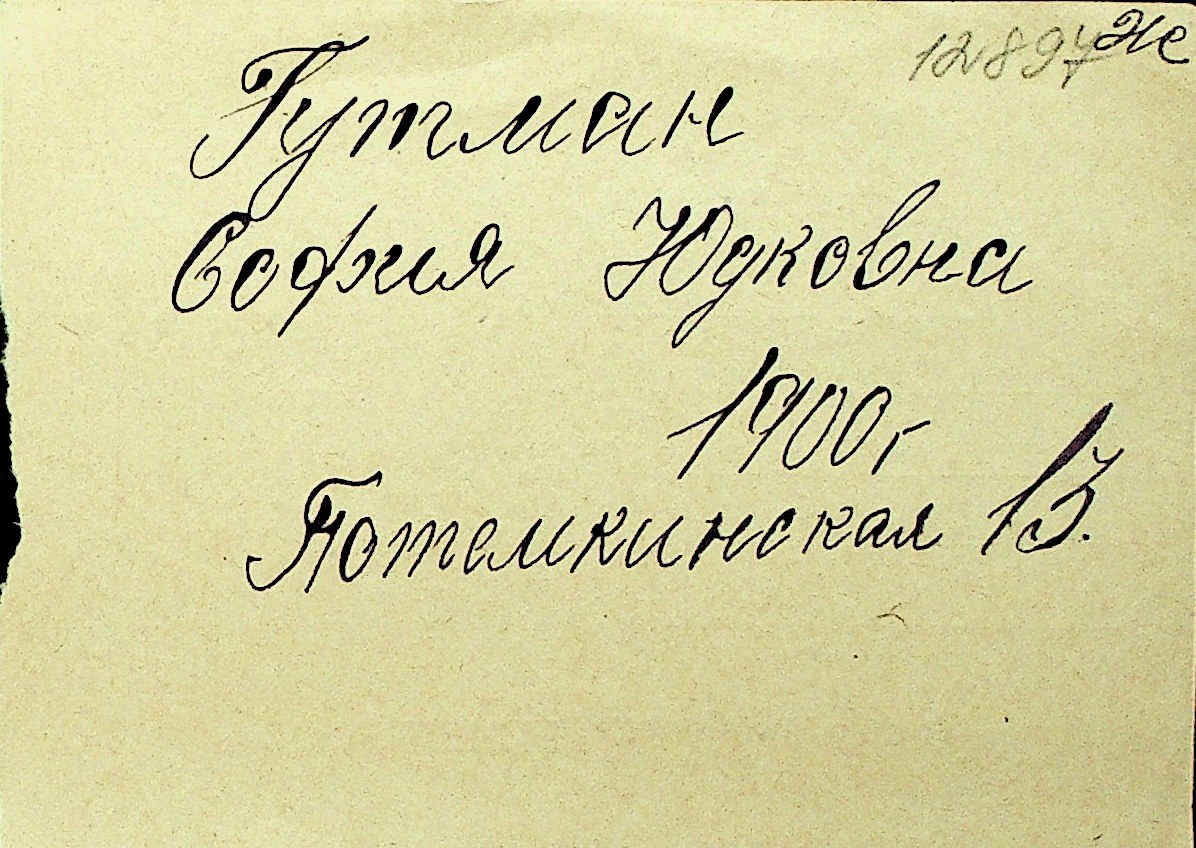 12897 Же
Гутман
София Юдковна
1900 г
Потемкинская 13.